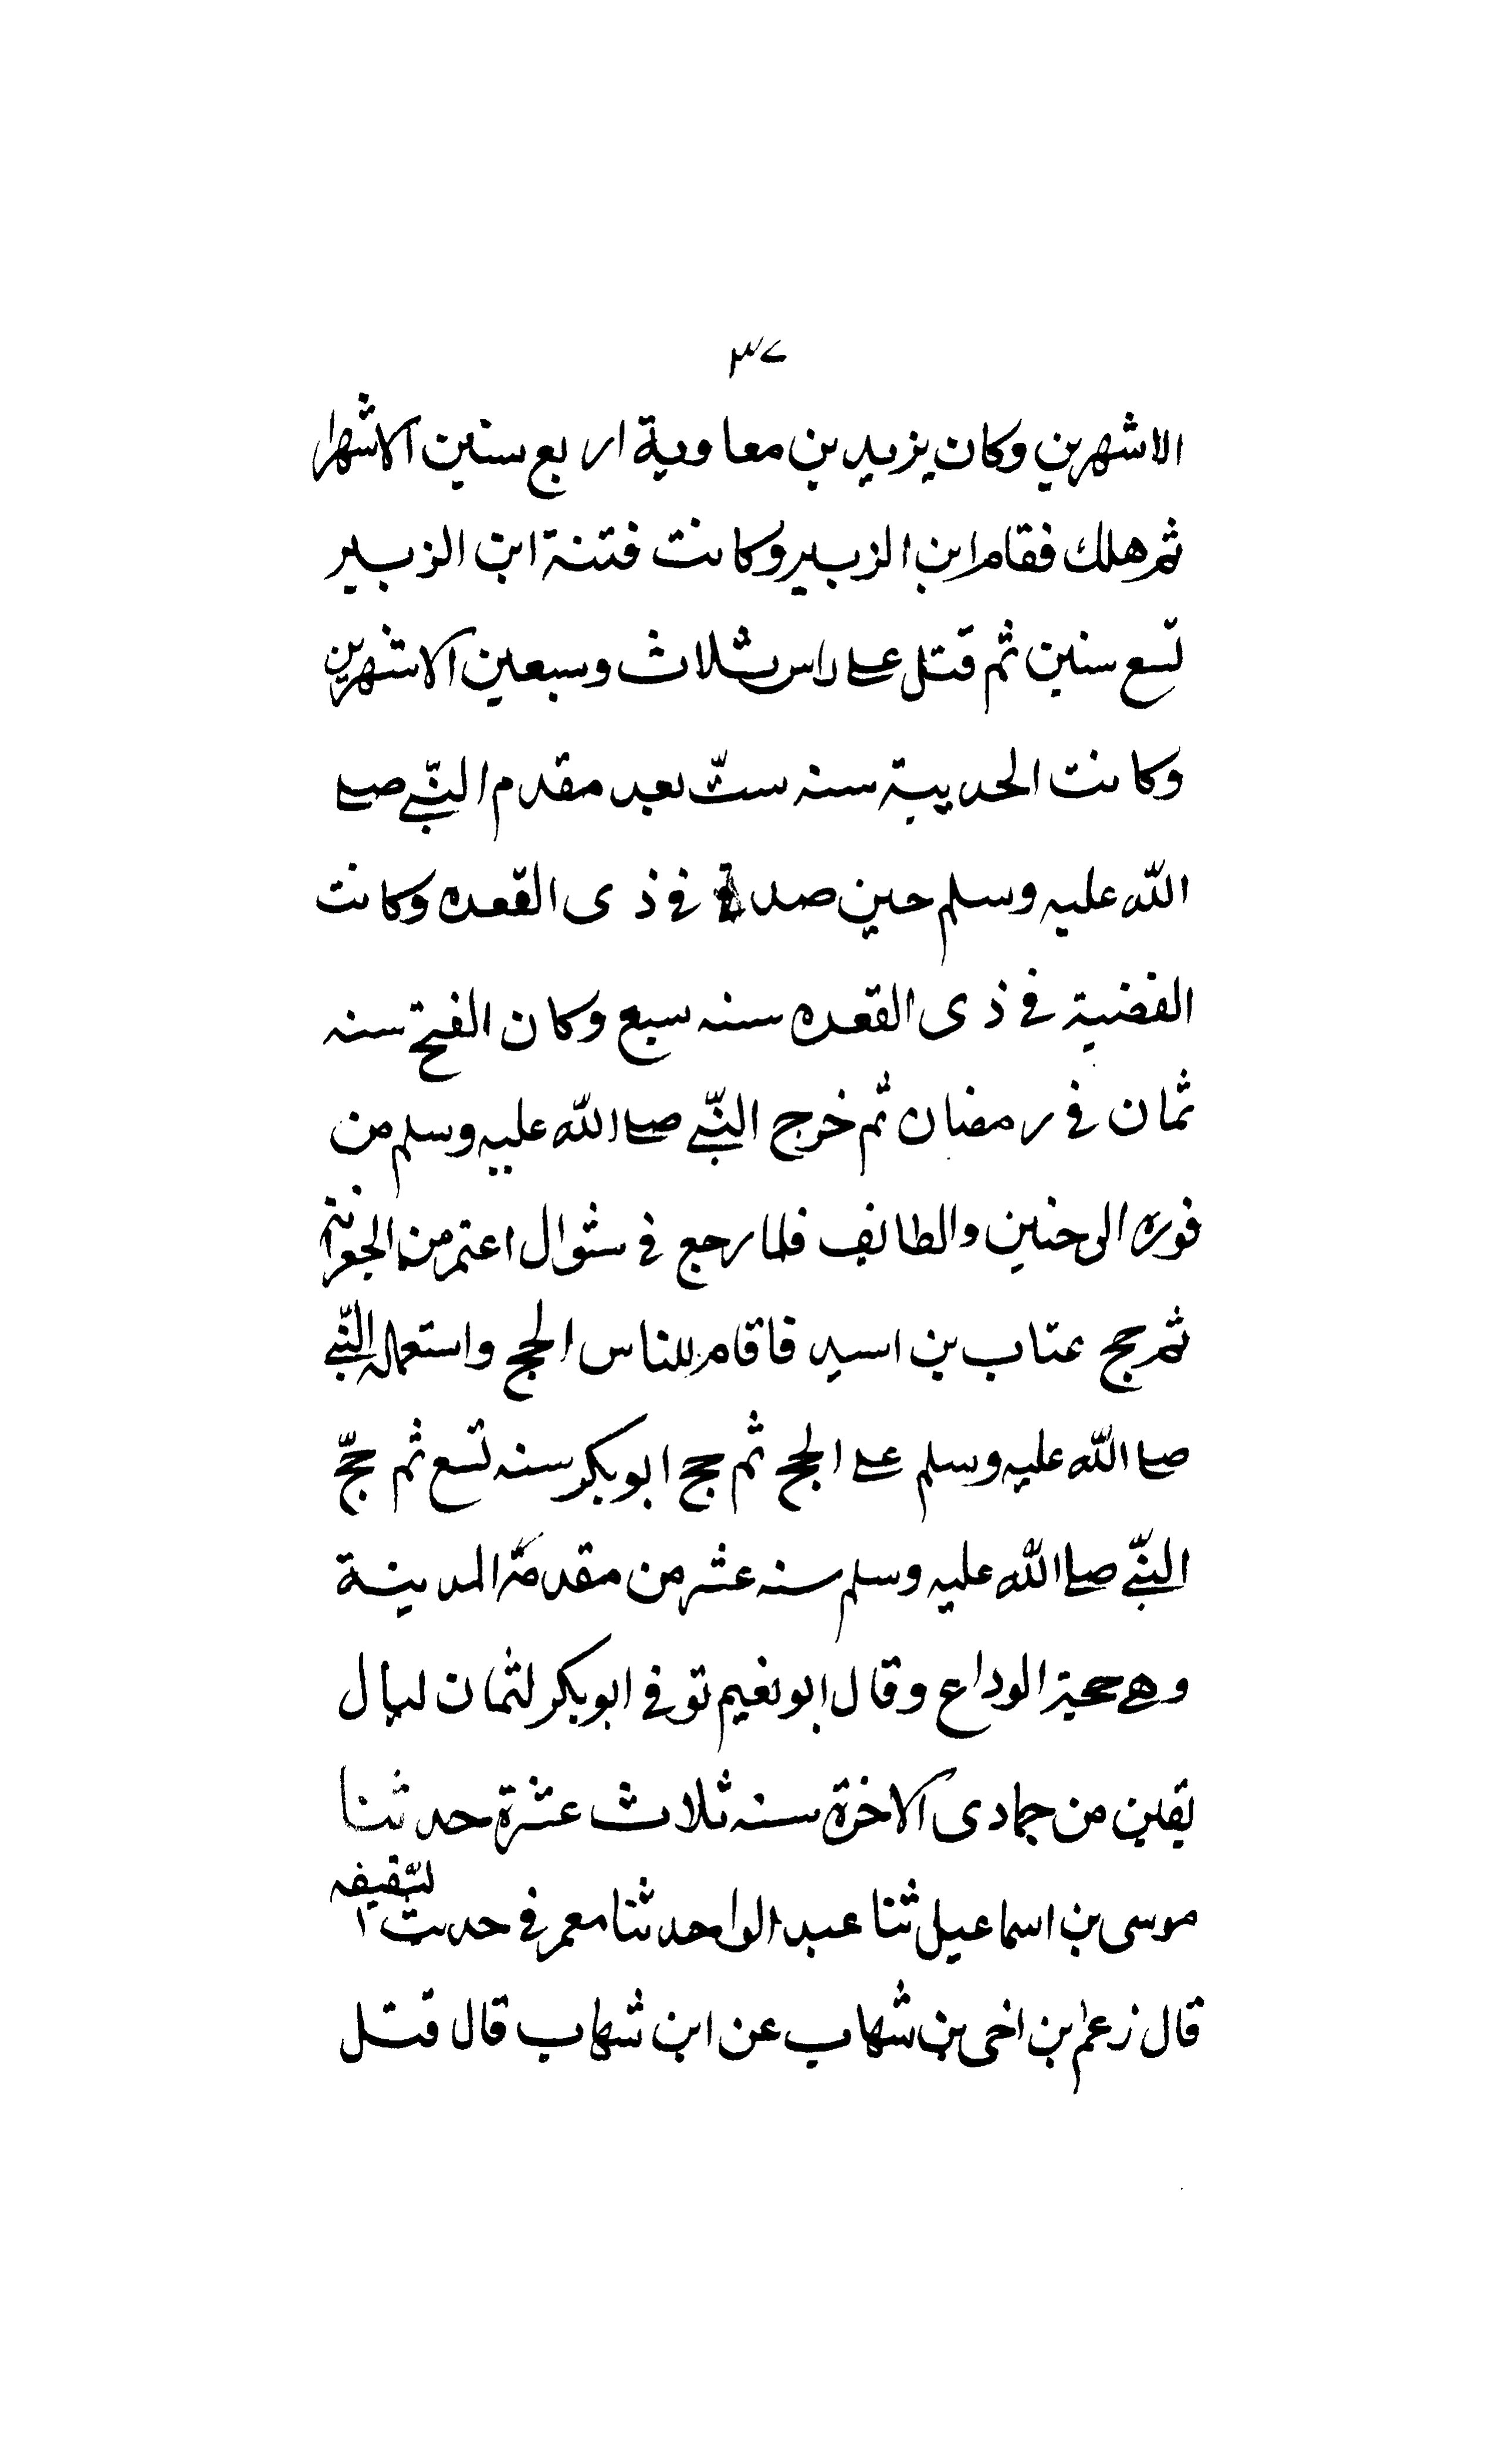 ٣٧
الا شهرين وكان يزيد بن معاوية اربع سنين الا شهرا
ثم هلك فقام ابن الزبير وكانت فتنة ابن الزبير
تسع سنين ثم قتل على راس ثلاث وسبعين الا شهرين
وكانت الحديبية سنه ستّ بعد مقدم النبّي صلى
اللّه عليه وسلم حين صد في ذى القعده وكانت
القضية في ذى القعده سنه سبع وكان الفتح سنه
ثمان في رمضان ثم خرج النبّي صلى اللّه عليه وسلم من
فوره الى حنين والطائف فلما رجع في شوال اعتمر من الجعرانة
ثم حج عتاب بن اسيد فاقام للناس الحج واستعمله النبّي
صلى اللّه عليه وسلم على الحج ثم حج ابو بكر سنه تسع ثم حجّ
النبّي صلى اللّه عليه وسلم سنه عشر من مقدمه المدينة
وهي حجة الوداع وقال ابو نعيم توفي ابو بكر لثمان ليال
بقين من جمادى الاخرة سنه ثلاث عشرة حدثنا
موسى بن اسماعيل ثنا عبد الواحد ثنا معمر في حديث السّقيفه
قال زعم ابن اخى بن شهاب عن ابن شهاب قال قتل